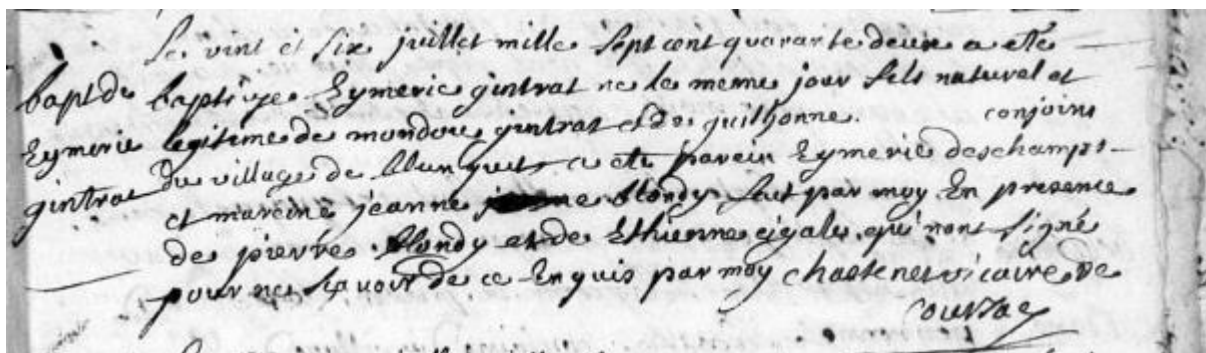 Le vint et six juillet mille sept cent quarante deux a eté
bapt de baptise Eymeric gintrat ne le meme jour fils naturel et
Eymeric legitime de mondou gintrat et de guilhonne conjoins
gintrat du village de a eté parein Eymeric deschamps
et mareine jeanne blondy fait par moy En presence
de pierre blondy et de Ethienne qui nont signé
pour ne sçavoir de ce Enquis par moy Chastenet vicaire de
Coursac